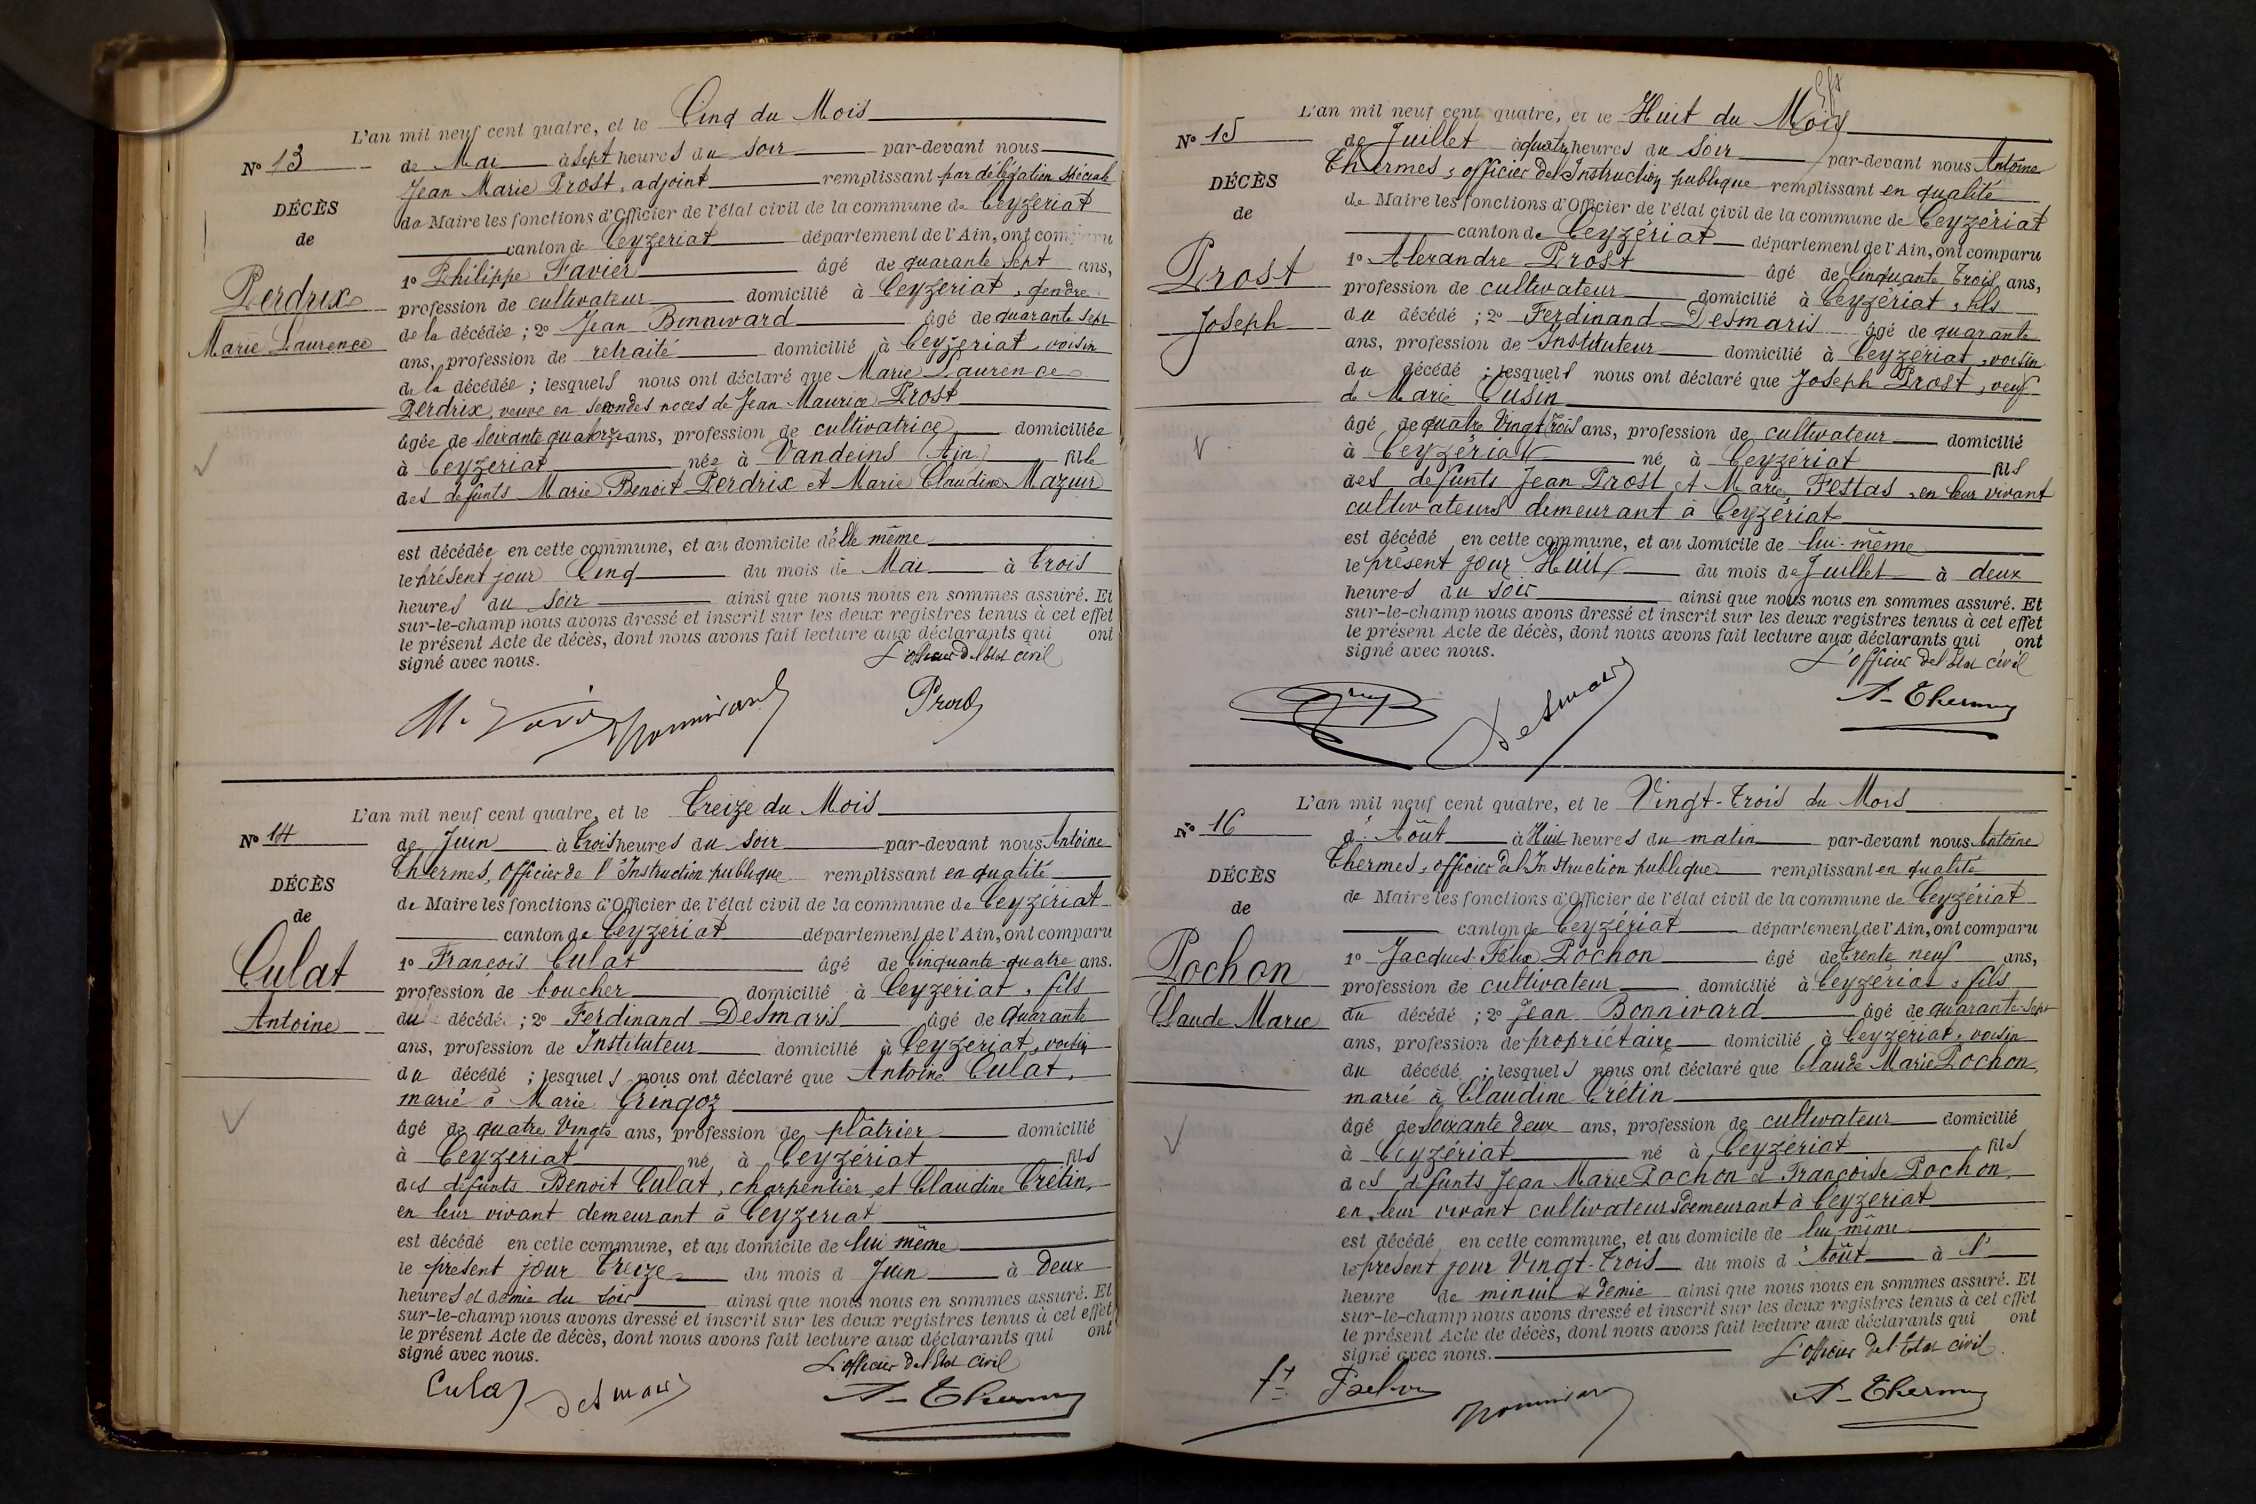 L'an mil neuf cent quatre, et le Cinq du Mois
No 13
de Mai à sept heures du soir par-devant nous
Jean Marie Prost, adjoint remplissant par délégation spéciale
DÉCÈS
de Maire les fonctions d'Officier de l'état civil de la commune de Ceyzériat
de
canton de Ceyzeriat département de l'Ain, ont comparu
1o Philippe Favier âgé de quarante sept ans,
Perdrix
profession de cultivateur domicilié à Ceyzeriat, gendre
de la décédée ; 2o Jean Bonnivard âgé de quarante sept
Marie Laurence
ans, profession de retraité domicilié à Ceyzeriat, voisin
de la décédée ; lesquels nous ont déclaré que Marie Laurence
Perdrix, veuve en secondes noces de Jean Maurice Prost
âgée de soixante quatorze ans, profession de cultivatrice domiciliée
à Ceyzeriat née à Vandeins (Ain) fille
des defunts Marie Benoit Perdrix et Marie Claudine Mazuir
est décédée en cette commune, et au domicile d'elle même
le présent jour Cinq du mois de Mai à trois
heures du soir ainsi que nous nous en sommes assuré. Et
sur-le-champ nous avons dressé et inscrit sur les deux registres tenus à cet effet
le présent Acte de décès, dont nous avons fait lecture aux déclarants qui ont
signé avec nous. L'officier de l'Etat civil
Bonnivard Prost
L'an mil neuf cent quatre, et le Treize du Mois
No 14
de Juin à trois heures du soir par-devant nous Antoine
Thermes, Officier de l'Instruction publique remplissant en qualité
DÉCÈS
de Maire les fonctions d'Officier de l'état civil de la commune de Ceyzériat
de
canton de Ceyzériat département de l'Ain, ont comparu
1o François Culat âgé de Cinquante-quatre ans.
Culat
profession de boucher domicilié à Ceyzeriat, fils
Antoine
du décédé ; 2o Ferdinand Desmaris âgé de Quarante
ans, profession de Instituteur domicilié à Ceyzeriat, voisin
du décédé ; lesquels nous ont déclaré que Antoine Culat,
marié à Marie Gringoz
âgé de quatre Vingts ans, profession de plâtrier domicilié
à Ceyzeriat né à Ceyzériat fils
des défunts Benoit Culat, charpentier et Claudine Crétin,
en leur vivant demeurant à Ceyzeriat
est décédé en cette commune, et au domicile de lui même
le présent jour treize du mois d Juin à Deux
heures et demie du soir ainsi que nous nous en sommes assuré. Et
sur-le-champ nous avons dressé et inscrit sur les deux registres tenus à cet effet
le présent Acte de décès, dont nous avons fait lecture aux déclarants qui ont
signé avec nous. L'officier de l'Etat civil
Culat Desmaris A-Thermes
L'an mil neuf cent quatre, et le Huit du Mois
No 15
de Juillet à quatre heures du soir par-devant nous Antoine
Thermes, officier de l'Instruction publique remplissant en qualité
DÉCÈS
de Maire les fonctions d'Officier de l'état civil de la commune de Ceyzériat
de
canton de Ceyzériat département de l'Ain, ont comparu
Prost
1o Alexandre Prost âgé de Cinquante trois ans,
profession de cultivateur domicilié à Ceyzériat, fils
Joseph
du décédé ; 2o Ferdinand Desmaris âgé de quarante
ans, profession de Instituteur domicilié à Ceyzeriat, voisin
du décédé ; lesquels nous ont déclaré que Joseph Prost, veuf
de Marie Cusin
âgé de quatre Vingt trois ans, profession de cultivateur domicilié
à Ceyzériat né à Ceyzériat fils
des defunts Jean Prost et Marie Festas, en leur vivant
cultivateurs demeurant à Ceyzériat
est décédé en cette commune, et au domicile de lui-même
le présent jour Huit du mois de Juillet à deux
heures du soir ainsi que nous nous en sommes assuré. Et
sur-le-champ nous avons dressé et inscrit sur les deux registres tenus à cet effet
le présent Acte de décès, dont nous avons fait lecture aux déclarants qui ont
signé avec nous. L'officier de l'Etat civil
Desmaris A-Thermes
L'an mil neuf cent quatre, et le Vingt-trois du Mois
No 16
d'Août à Huit heures du matin par-devant nous Antoine
Thermes, officier de l'Instruction publique remplissant en qualité
DÉCÈS
de Maire les fonctions d'Officier de l'état civil de la commune de Ceyzériat
de
canton de Ceyzériat département de l'Ain, ont comparu
Pochon
1o Jacques Félix Pochon âgé de trente neuf ans,
profession de cultivateur domicilié à Ceyzériat, fils
Claude Marie
du décédé ; 2o Jean Bonnivard âgé de quarante-sept
ans, profession de propriétaire domicilié à Ceyzériat, voisin
du décédé ; lesquels nous ont déclaré que Claude Marie Pochon,
marié à Claudine Crétin
âgé de soixante Deux ans, profession de cultivateur domicilié
à Ceyzériat né à Ceyzériat fils
des défunts Jean Marie Pochon et Françoise Pochon,
en leur vivant cultivateurs demeurant à Ceyzeriat
est décédé en cette commune, et au domicile de lui même
le présent jour Vingt-trois du mois d'Août à l'
heure de minuit & demie ainsi que nous nous en sommes assuré. Et
sur-le-champ nous avons dressé et inscrit sur les deux registres tenus à cet effet
le présent Acte de décès, dont nous avons fait lecture aux déclarants qui ont
signé avec nous. L'officier de l'Etat civil
Bonnivard A-Thermes